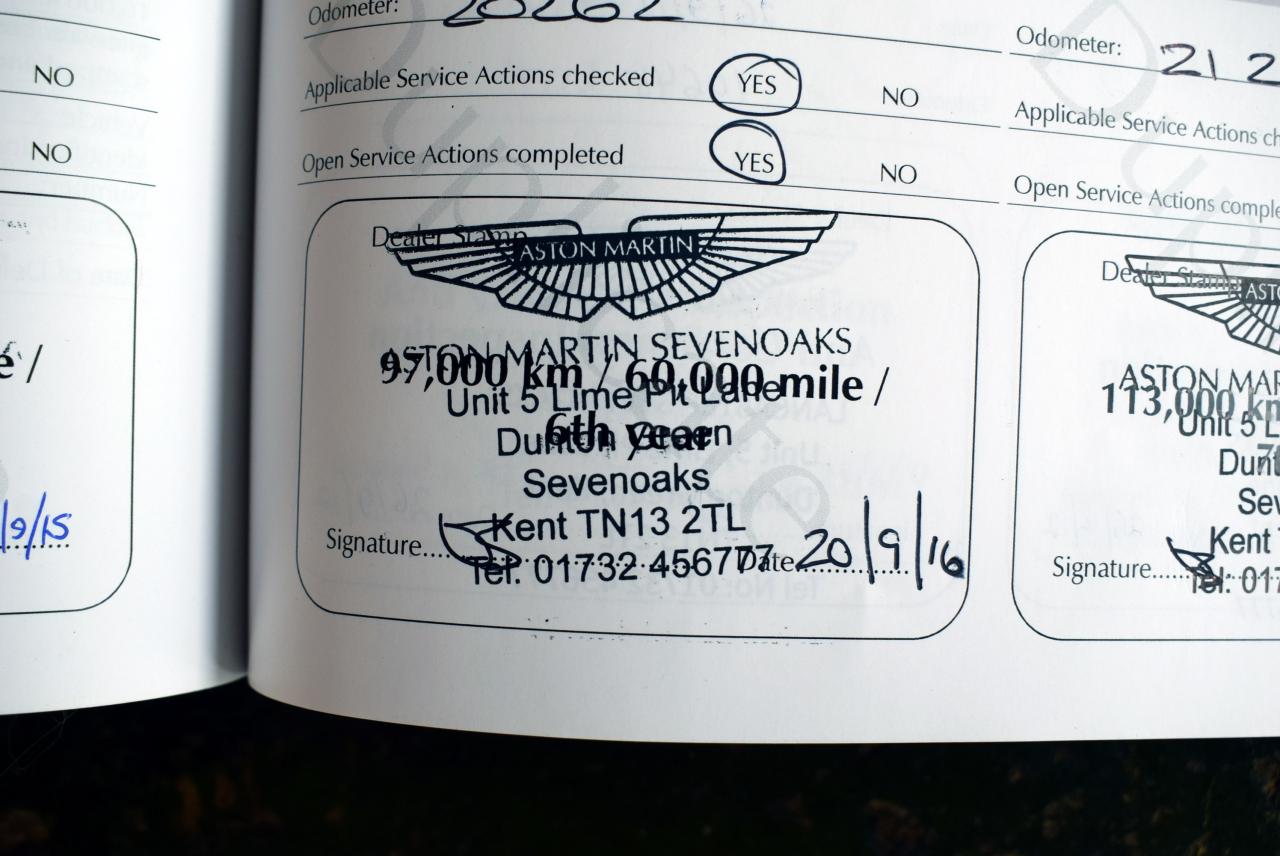 NO
NO
é /
/9/15
Odometer: 20262
Applicable Service Actions checked YES NO
Open Service Actions completed YES NO
Dealer Stamp
ASTON MARTIN
ASTON MARTIN SEVENOAKS
97,000 km / 60,000 mile /
Unit 5 Lime Pit Lane
6th year
Dunton Green
Sevenoaks
Kent TN13 2TL
Signature
Tel: 01732 456777
Date 20/9/16
Duplicate
Odometer: 21 2
Applicable Service Actions ch
Open Service Actions comple
Dealer Stamp
AST
ASTON MAR
113,000 km
Unit 5 L
Dunt
Sev
Kent
Signature
Tel: 017